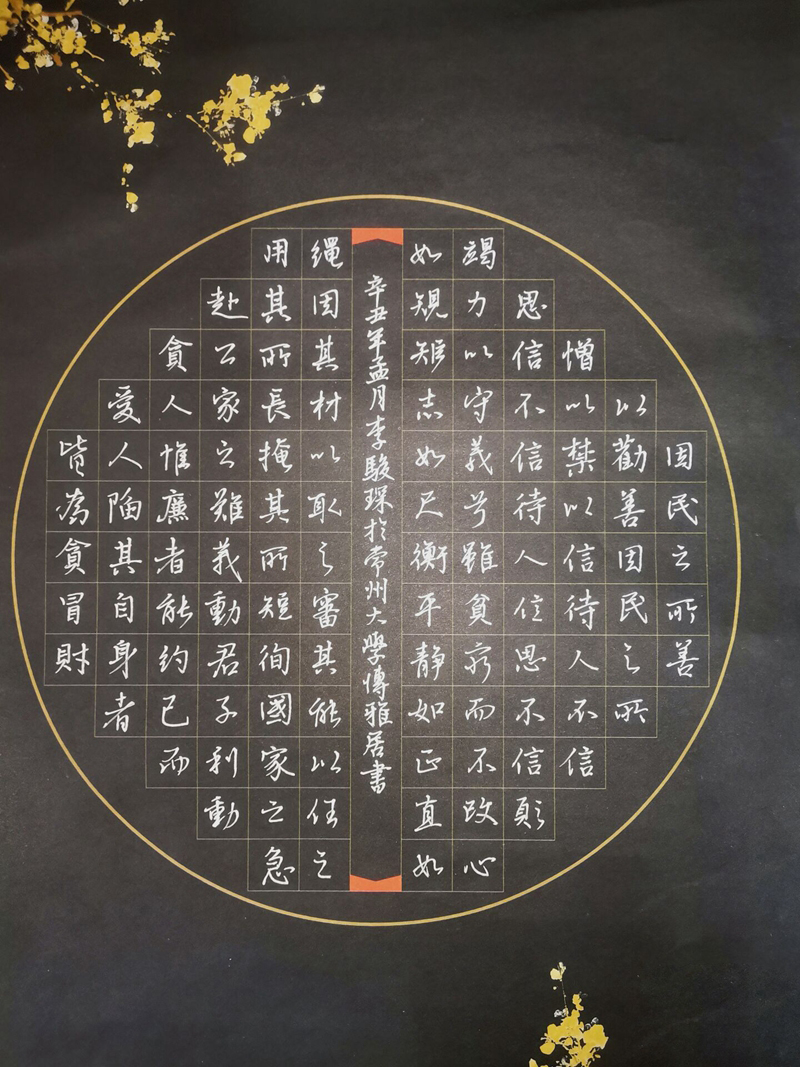 因民之所善
以勸善因民之所
憎以禁以信待人不信
思信不信待人信思不信願
竭力以守義兮雖貧窮而不改心
如規矩志如尺衡平靜如正直如
辛丑年孟月李駿琛於常州大學博雅居書
繩因其材以取之審其能以任之
用其所長掩其所短徇國家之急
赴公家之難義動君子利動
貪人惟廉者能約己而
愛人陥其自身者
皆為貪冒財